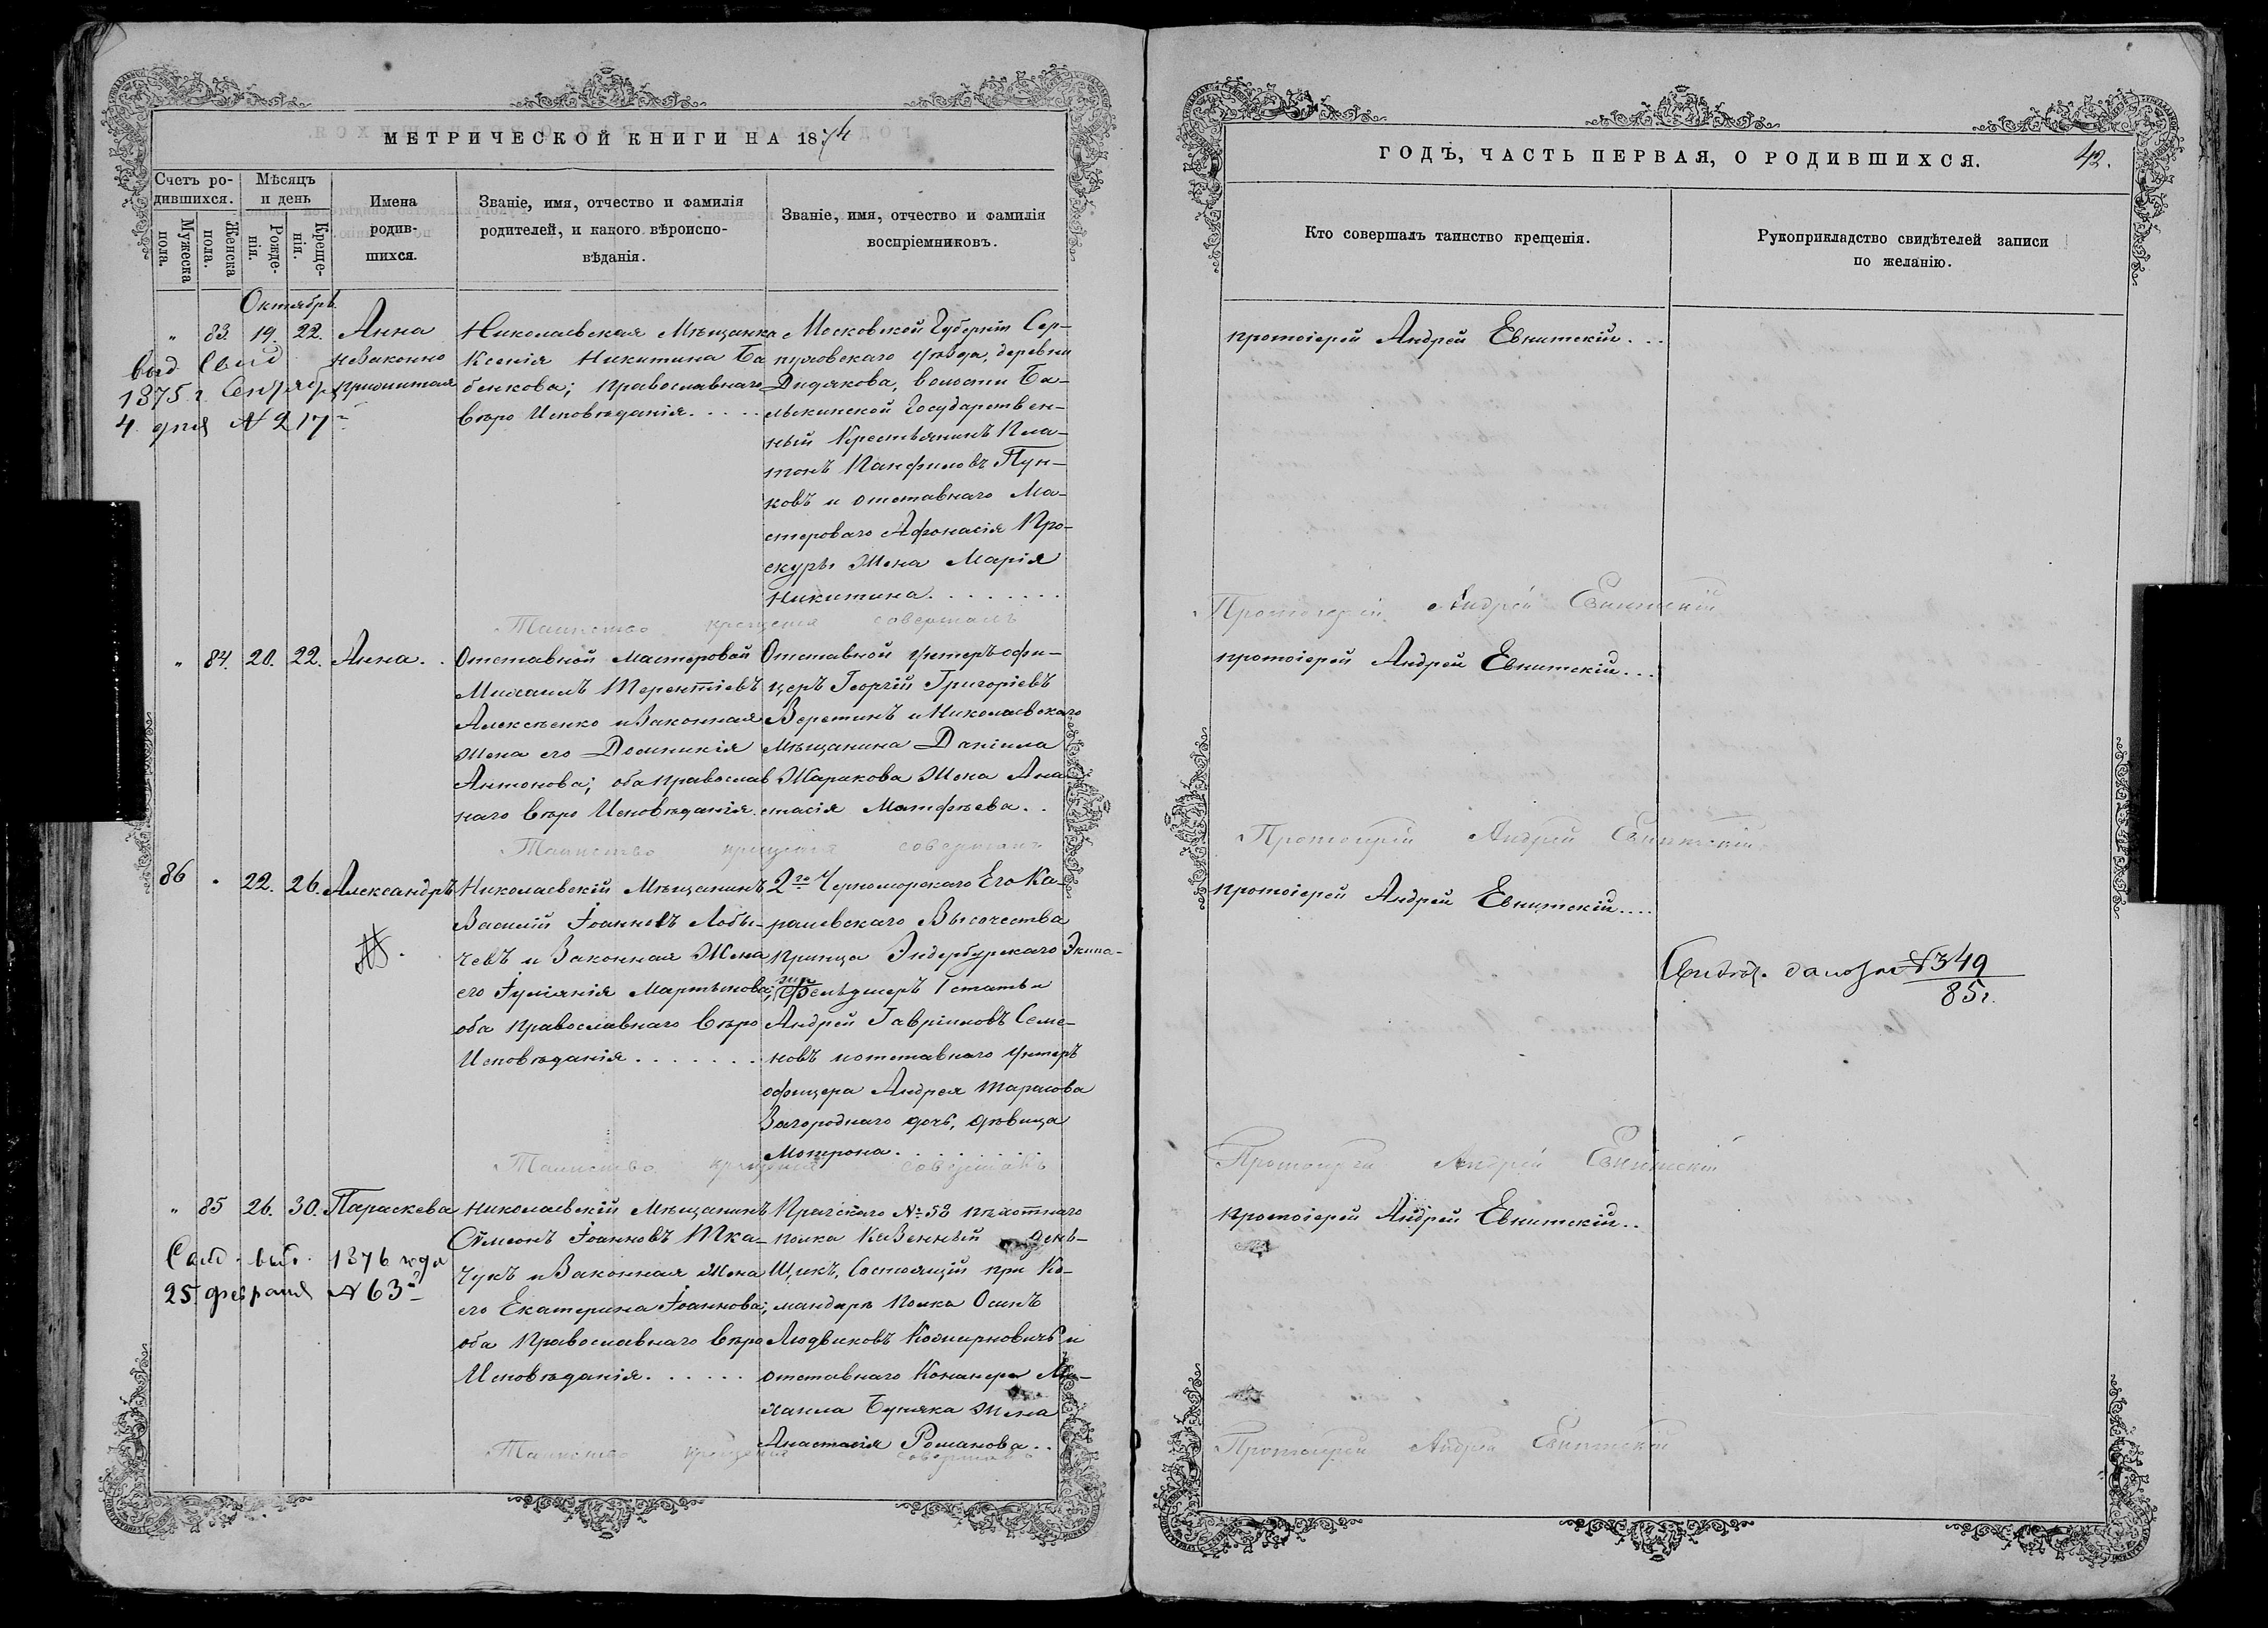 МЕТРИЧЕСКОЙ КНИГИ НА 1874
Счетъ ро-
дившихся.
Мѣсяцъ
и день
Мужеска
пола.
Женска
пола.
Рожде-
нія.
Креще-
нія.
Имена
родив-
шихся.
Званіе, имя, отчество и фамилія
родителей, и какого вѣроиспо-
вѣданія.
Званіе, имя, отчество и фамилія
воспріемниковъ.
Октябрь.
" 83. 19. 22. Анна
незаконно
прижитая
выд Свид
1875 г Сентяр
4 дня № 217
Николаевская Мѣщанка
Ксенія Никитина Ба
бенкова; православнаго
вѣро Исповѣданія. . . .
Московской Губерніи Сер-
пуховскаго уѣзда, деревни
Дидякова, волости Ба-
векинской Государствен-
ный Крестьянинъ Пла-
тонъ Панфиловъ Пун-
ковъ и отставнаго Ма-
стероваго Афонасія Про-
скуры Жена Марія
Никитина. . . . . . . .
Таинство крещенія совершалъ
" 84. 20. 22. Анна. .
Отставной мастеровой
Михаилъ Терентіевъ
Алексѣенко и Законная
Жена его Домникія
Антонова; оба православ
наго вѣро Исповѣданія.
Отставной унтеръ-офи-
церъ Георгій Григоріевъ
Веретинъ и Николаевскаго
Мѣщанина Даніила
Шаракова Жена Ана
стасія Матфѣева. .
Таинство крещенія совершалъ
86 " 22. 26. Александръ
Николаевскій Мѣщанинъ
Василій Іоанновъ Лобы-
чевъ и Законная Жена
его Іуліанія Мартынова;
оба православнаго вѣро
Исповѣданія. . . . . . .
2го Черноморскаго Его Ка-
ралевскаго Высочества
принца Эндербурскаго Экипа-
жа Фельдшеръ 1 статьи
Андрей Гавріиловъ Семе-
новъ и отставнаго унтеръ
офицера Андрея Тарасова
Загороднаго дочь, дѣвица
Мотрона. . . . . . .
Таинство крещенія совершалъ
" 85 26. 30. Параскева
Свид. выд. 1876 года
25 февраля № 63
Николаевскій Мѣщанинъ
Сѵмеонъ Іоанновъ Тка-
чукъ и Законная Жена
его Екатерина Іоаннова;
оба Православнаго вѣро
Исповѣданія. . . . . .
Прагскаго № 58 пѣхотнаго
полка Казенный день-
щикъ, Состоящій при Ко-
мандирѣ полка Осипъ
Людвиковъ Козмирновичъ и
отставнаго Конанера Ми-
хаила Буняка жена
Анастасія Романова. .
Таинство крещенія совершалъ
ГОДЪ, ЧАСТЬ ПЕРВАЯ, О РОДИВШИХСЯ.
42.
Кто совершалъ таинство крещенія.
Рукоприкладство свидѣтелей записи
по желанію.
протоіерей Андрей Евнитскій. . .
Протоіерей Андрей Евнитскій
протоіерей Андрей Евнитскій. . .
Протоіерей Андрей Евнитскій
протоіерей Андрей Евнитскій. . . .
№ 349
85 г.
Протоіерей Андрей Евнитскій
протоіерей Андрей Евнитскій. .
Протоіерей Андрей Евнитскій